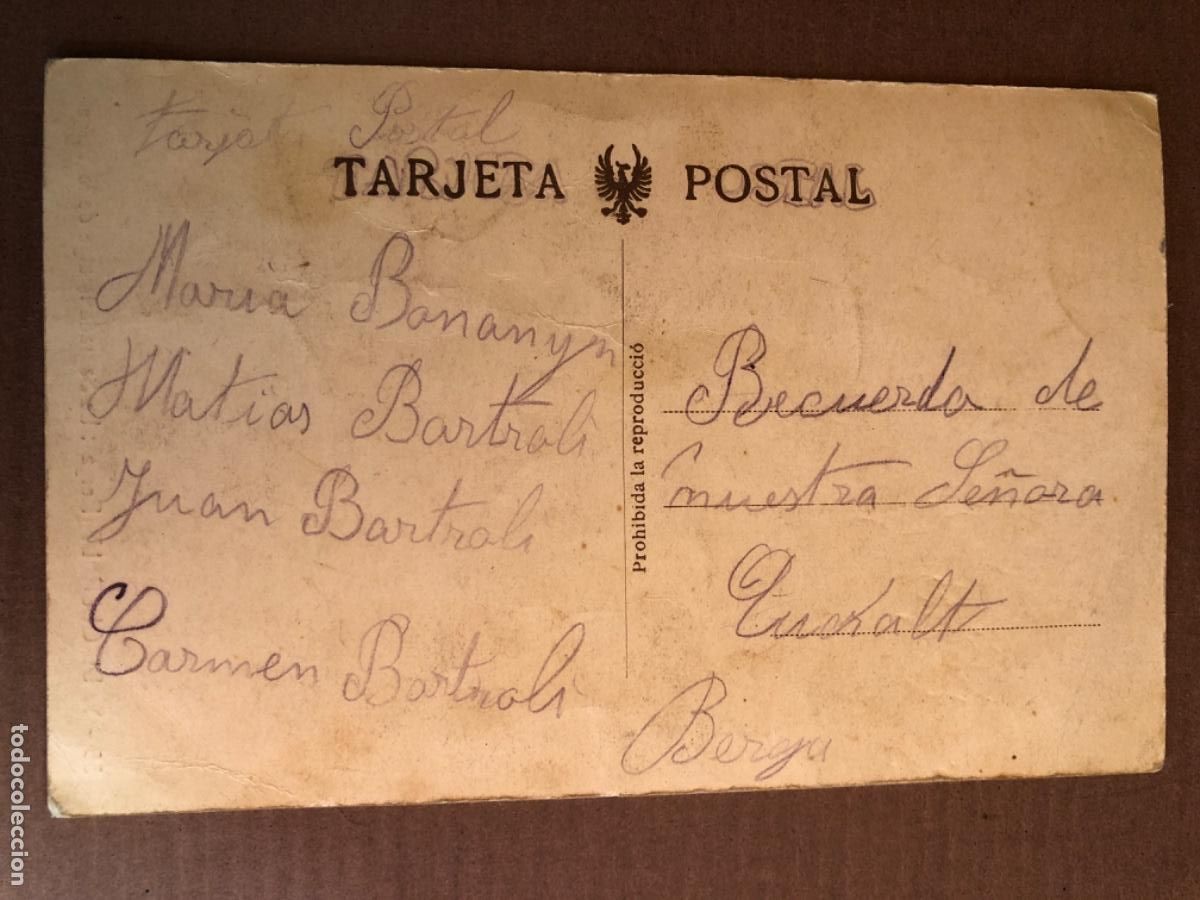 Tarjat Postal
TARJETA POSTAL
Maria Bonanyn
Matias Bartroli
Juan Bartroli
Carmen Bartroli
Prohibida la reproducció
Recuerda de
nuestra Señora
Quxalt
Berga
todocoleccion